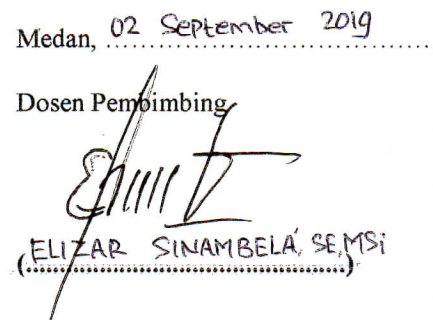 Medan, 02 September 2019
Dosen Pembimbing
(ELIZAR SINAMBELA, SE, MSi)